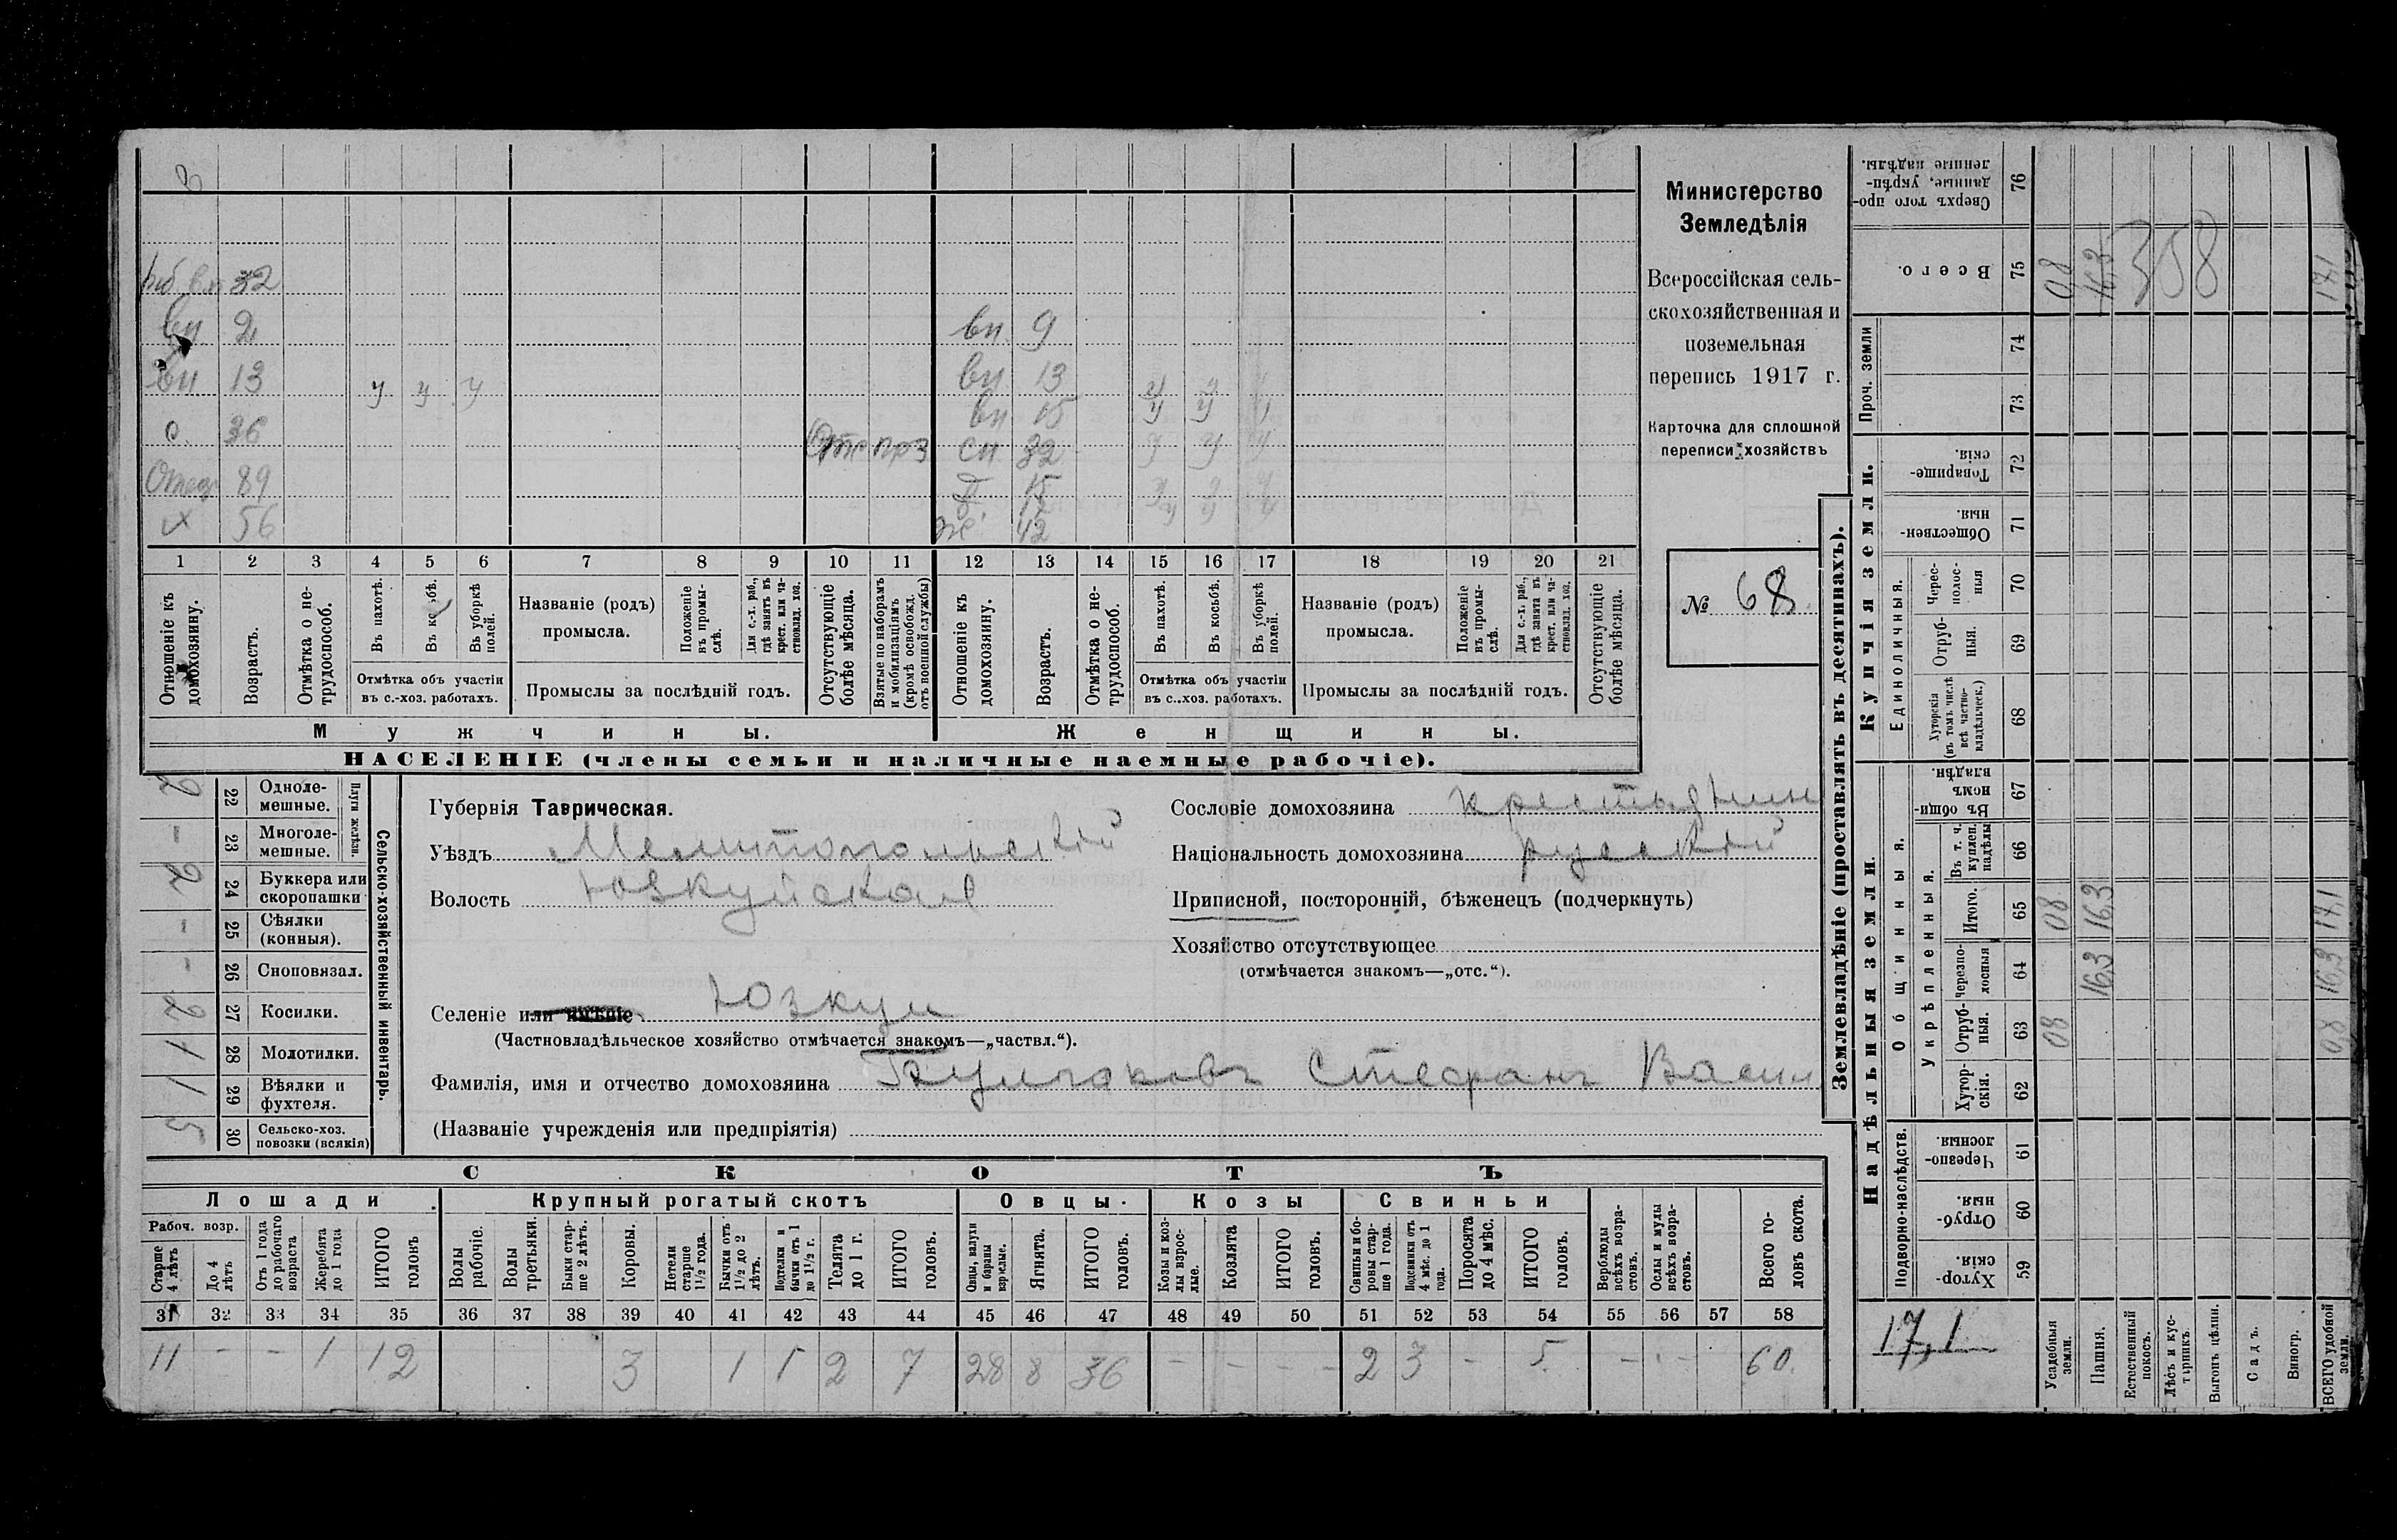 8
рб. вп 32
вп 2 вп. 9
вп 13 у у у вп 13 у у
вп. 15 у у
с. 36 Отс прз сп 32 у у у
Отец 89 д 15 у у у
х 56 д. 17 у у у
же. 42
1 2 3 4 5 6 7 8 9 10 11 12 13 14 15 16 17 18 19 20 21
Отношеніе къ домохозяину.
Возрастъ.
Отмѣтка о нетрудоспособ.
Въ пахотѣ.
Въ косьбѣ.
Въ уборкѣ полей.
Отмѣтка объ участіи въ с.-хоз. работахъ.
Названіе (родъ) промысла.
Положеніе въ промыслѣ.
Для с.-х. раб., гдѣ занятъ въ крест. или частновлад. хоз.
Промыслы за послѣдній годъ.
Отсутствующіе болѣе мѣсяца.
Взятые по наборамъ и мобилизаціямъ (кромѣ освобожд. отъ военной службы)
Отношеніе къ домохозяину.
Возрастъ.
Отмѣтка о нетрудоспособ.
Въ пахотѣ.
Въ косьбѣ.
Въ уборкѣ полей.
Отмѣтка объ участіи въ с.-хоз. работахъ.
Названіе (родъ) промысла.
Положеніе въ промыслѣ.
Для с.-х. раб., гдѣ занята въ крест. или частновлад. хоз.
Промыслы за послѣдній годъ.
Отсутствующіе болѣе мѣсяца.
Мужчины. Женщины.
НАСЕЛЕНІЕ (члены семьи и наличные наемные рабочіе).
Министерство
Земледѣлія
Всероссійская сель-
скохозяйственная и
поземельная
перепись 1917 г.
Карточка для сплошной
переписи хозяйствъ
№ 68
Сельско-хозяйственный инвентарь.
Плуги желѣзн.
2 22 Одноле-мешные.
- 23 Многоле-мешные.
2 24 Буккера или скоропашки
- 25 Сѣялки (конныя).
- 26 Сноповязал.
2 27 Косилки.
1 28 Молотилки.
1 29 Вѣялки и фухтеля.
5 30 Сельско-хоз. повозки (всякія)
Губернія Таврическая.
Уѣздъ Мелитопольскій
Волость Юзкуйская
Селеніе или имѣніе Юзкуи
(Частновладѣльческое хозяйство отмѣчается знакомъ—„частвл.“).
Фамилія, имя и отчество домохозяина Булгаковъ Стефанъ Васил
(Названіе учрежденія или предпріятія)
Сословіе домохозяина крестьянин
Національность домохозяина русскій
Приписной, посторонній, бѣженецъ (подчеркнуть)
Хозяйство отсутствующее
(отмѣчается знакомъ—„отс.“).
СКОТЪ
Лошади Крупный рогатый скотъ Овцы. Козы Свиньи
Рабоч. возр.
Старше 4 лѣтъ
До 4 лѣтъ
Отъ 1 года до рабочаго возраста
Жеребята до 1 года
ИТОГО головъ
Волы рабочіе.
Волы третьяки.
Быки старше 2 лѣтъ.
Коровы.
Нетели старше 1½ года.
Бычки отъ 1½ до 2 лѣтъ.
Подтелки и бычки отъ 1 до 1½ г.
Телята до 1 г.
ИТОГО головъ.
Овцы, валухи и бараны взрослые.
Ягнята.
ИТОГО головъ.
Козы и козлы взрослые.
Козлята
ИТОГО головъ.
Свиньи и боровы старше 1 года.
Подсвинки отъ 4 мѣс. до 1 года.
Поросята до 4 мѣс.
ИТОГО головъ.
Верблюды всѣхъ возрастовъ.
Ослы и мулы всѣхъ возрастовъ.
Всего головъ скота.
31 32 33 34 35 36 37 38 39 40 41 42 43 44 45 46 47 48 49 50 51 52 53 54 55 56 57 58
11 - - 1 12 3 1 1 2 7 28 8 36 - - - - 2 3 - 5 - - - 60.
Землевладѣніе (проставлять въ десятинахъ).
Купчія земли.
Надѣльныя земли.
Сверхъ того проданные, укрѣпленные надѣлы. 76
Всего. 75 08 16,3 358 171
Проч. земли 74 73
Товарищескія. 72
Общественныя. 71
Единоличныя.
Черес-полос-ныя 70
Отруб-ныя. 69
Хуторскія (въ томъ числѣ всѣ частно-владѣльческ.) 68
Общинныя.
Въ общинномъ владѣн. 67
Укрѣпленныя.
Въ т. ч. куплен. надѣлы 66
Итого. 65 08 16,3 17,1
Черезполосныя 64 16,3 16,3
Отруб-ныя. 63 08 0,8
Хутор-скія. 62
Подворно-наслѣдств.
Черезполосныя. 61
Отруб-ныя. 60
Хутор-скія. 59
17,1
Усадебныя земли.
Пашня.
Естественный покосъ.
Лѣсъ и кустарникъ
Выгонъ цѣлин.
Садъ.
Виногр.
ВСЕГО удобной земли.